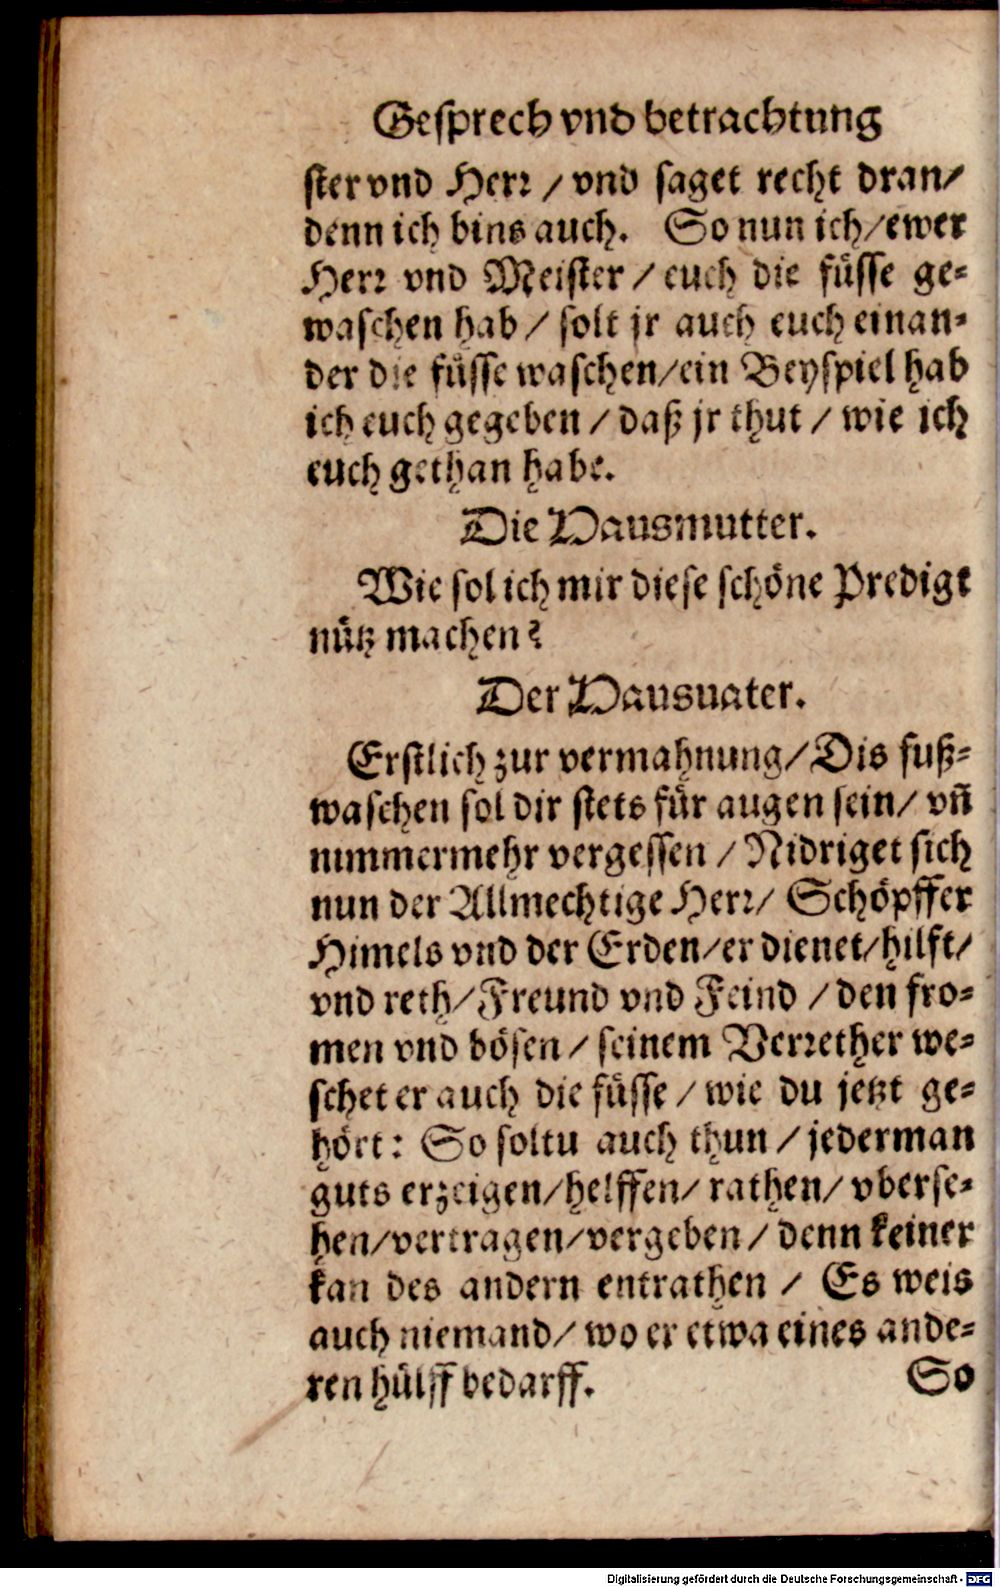 Gesprech vnd betrachtung
ster vnd Herr / vnd saget recht dran/
denn ich bins auch. So nun ich/ewer
Herr vnd Meister / euch die füsse ge-
waschen hab / solt jr auch euch einan-
der die füsse waschen/ein Beyspiel hab
ich euch gegeben / daß jr thut / wie ich
euch gethan habe.
Die Hausmutter.
Wie sol ich mir diese schöne Predigt
nütz machen?
Der Hausuater.
Erstlich zur vermahnung/Dis fuß-
waschen sol dir stets für augen sein/ vñ
nimmermehr vergessen / Nidriget sich
nun der Allmechtige Herr/ Schöpffer
Himels vnd der Erden/er dienet/hilft/
vnd reth/Freund vnd Feind / den fro-
men vnd bösen / seinem Verrether we-
schet er auch die füsse / wie du jetzt ge-
hört: So soltu auch thun / jederman
guts erzeigen/helffen/ rathen/ vberse-
hen/vertragen/vergeben / denn keiner
kan des andern entrathen / Es weis
auch niemand/ wo er etwa eines ande-
ren hülff bedarff. So
Digitalisierung gefördert durch die Deutsche Forschungsgemeinschaft - DFG